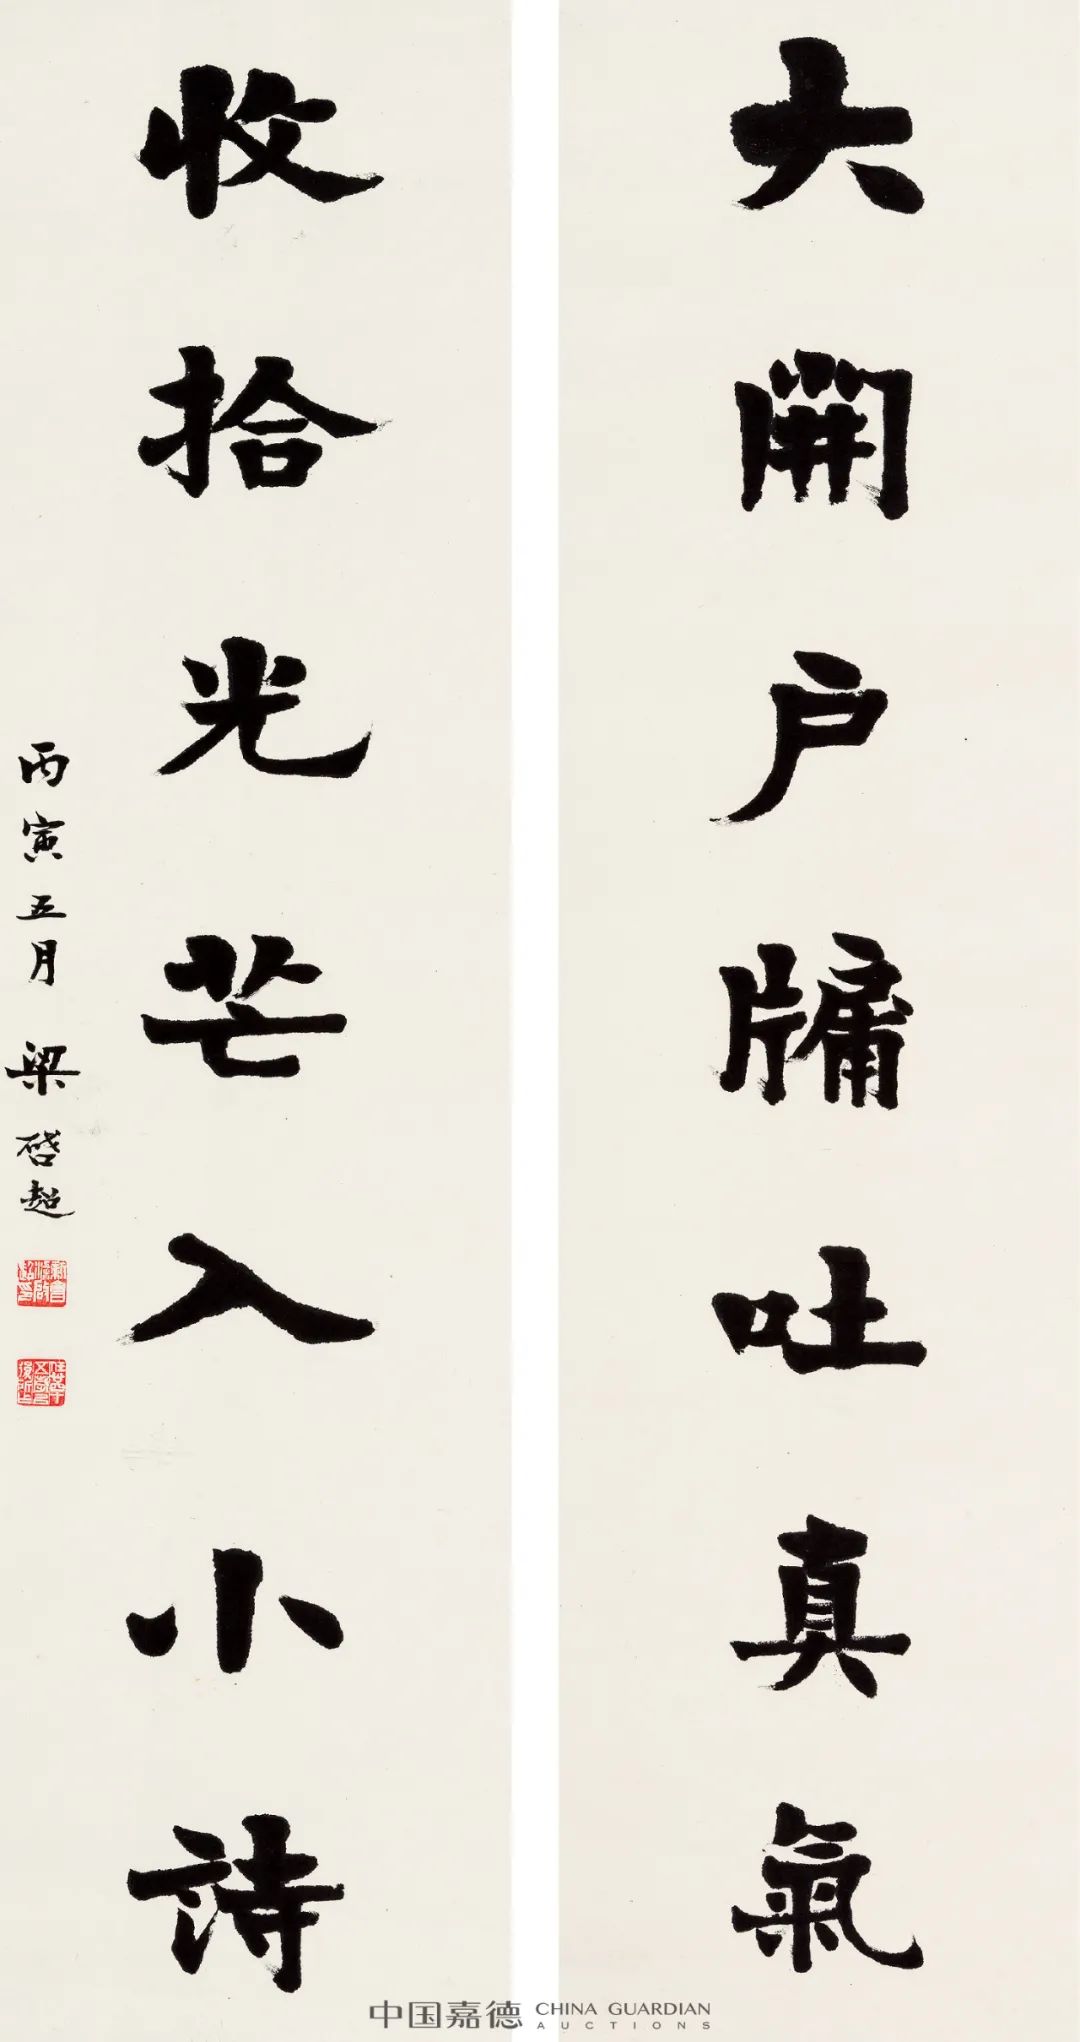 大開户牖吐真氣
收拾光芒入小詩
丙寅五月 梁啓超
中国嘉德 CHINA GUARDIAN AUCTIONS